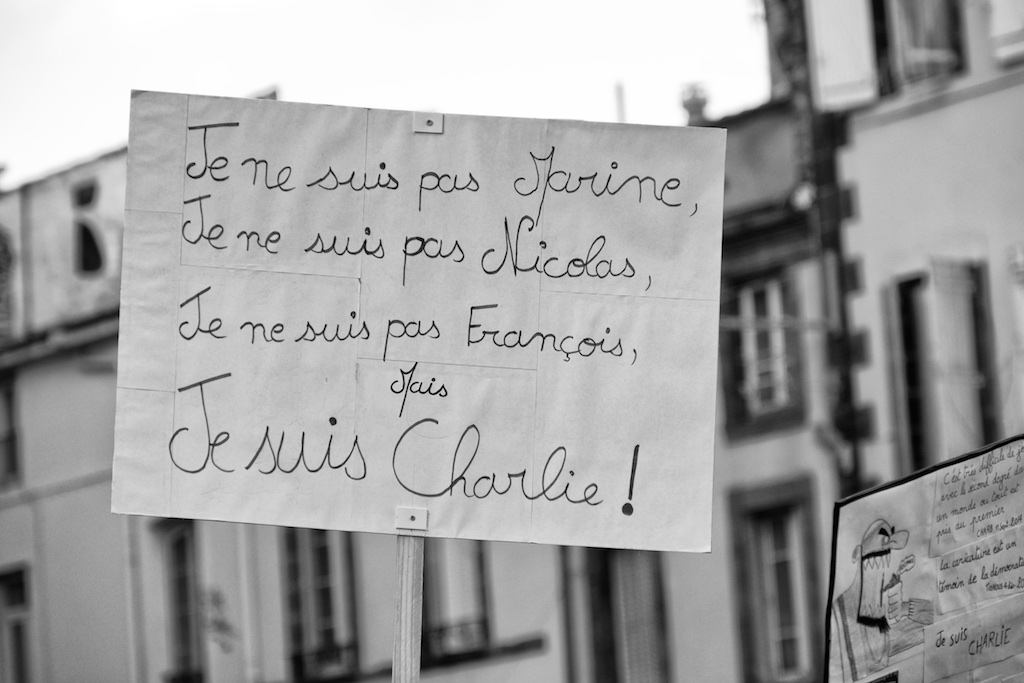 Je ne suis pas Marine,
Je ne suis pas Nicolas,
Je ne suis pas François,
Mais
Je suis Charlie !
C'est très difficile de
avec le second degré da
un monde où tout est
pris au premier
CHARB
la caricature est un
témoin de la démocrat
Je suis
CHARLIE